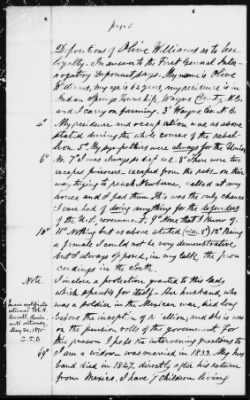 page 5
Depositions of Olive Williams as to her
loyalty. In answer to the First General Inter-
rogatory Deponent says. My name is Olive
Williams, my age is 62 years, my residence is in
Indian Springs Township, Wayne County, N.C.
and I carry on farming. 3° Wayne Co. N.C.
4° My residence and occupation was as above
stated during the whole course of the rebel-
lion. 5° My sympathies were always for the Union
6° No. 7° I was always 8° There were two
escaped prisoners - escaped from the rebs - on their
way trying to reach Newbern, called at my
house and I fed them. It was the only chance
I ever had of doing anything for the defenders
of the U.S. government. 9° None that I know of.
10° 11° Nothing but as above stated 12° Being
a female I could not be very demonstrative
but I always opposed, in my talk the pro-
ceedings in the South.
Note. I inclose a protection granted to this lady
which speaks for itself. Her husband, who
was a soldier in the Mexican war, died long
before the inception of and she is now
on the pension rolls of the government. For
this reason I pass the intervening questions to
69 I am a widow - was married in 1833. My hus-
band died in 1847 directly after his return
from Mexico. I have 7 children living